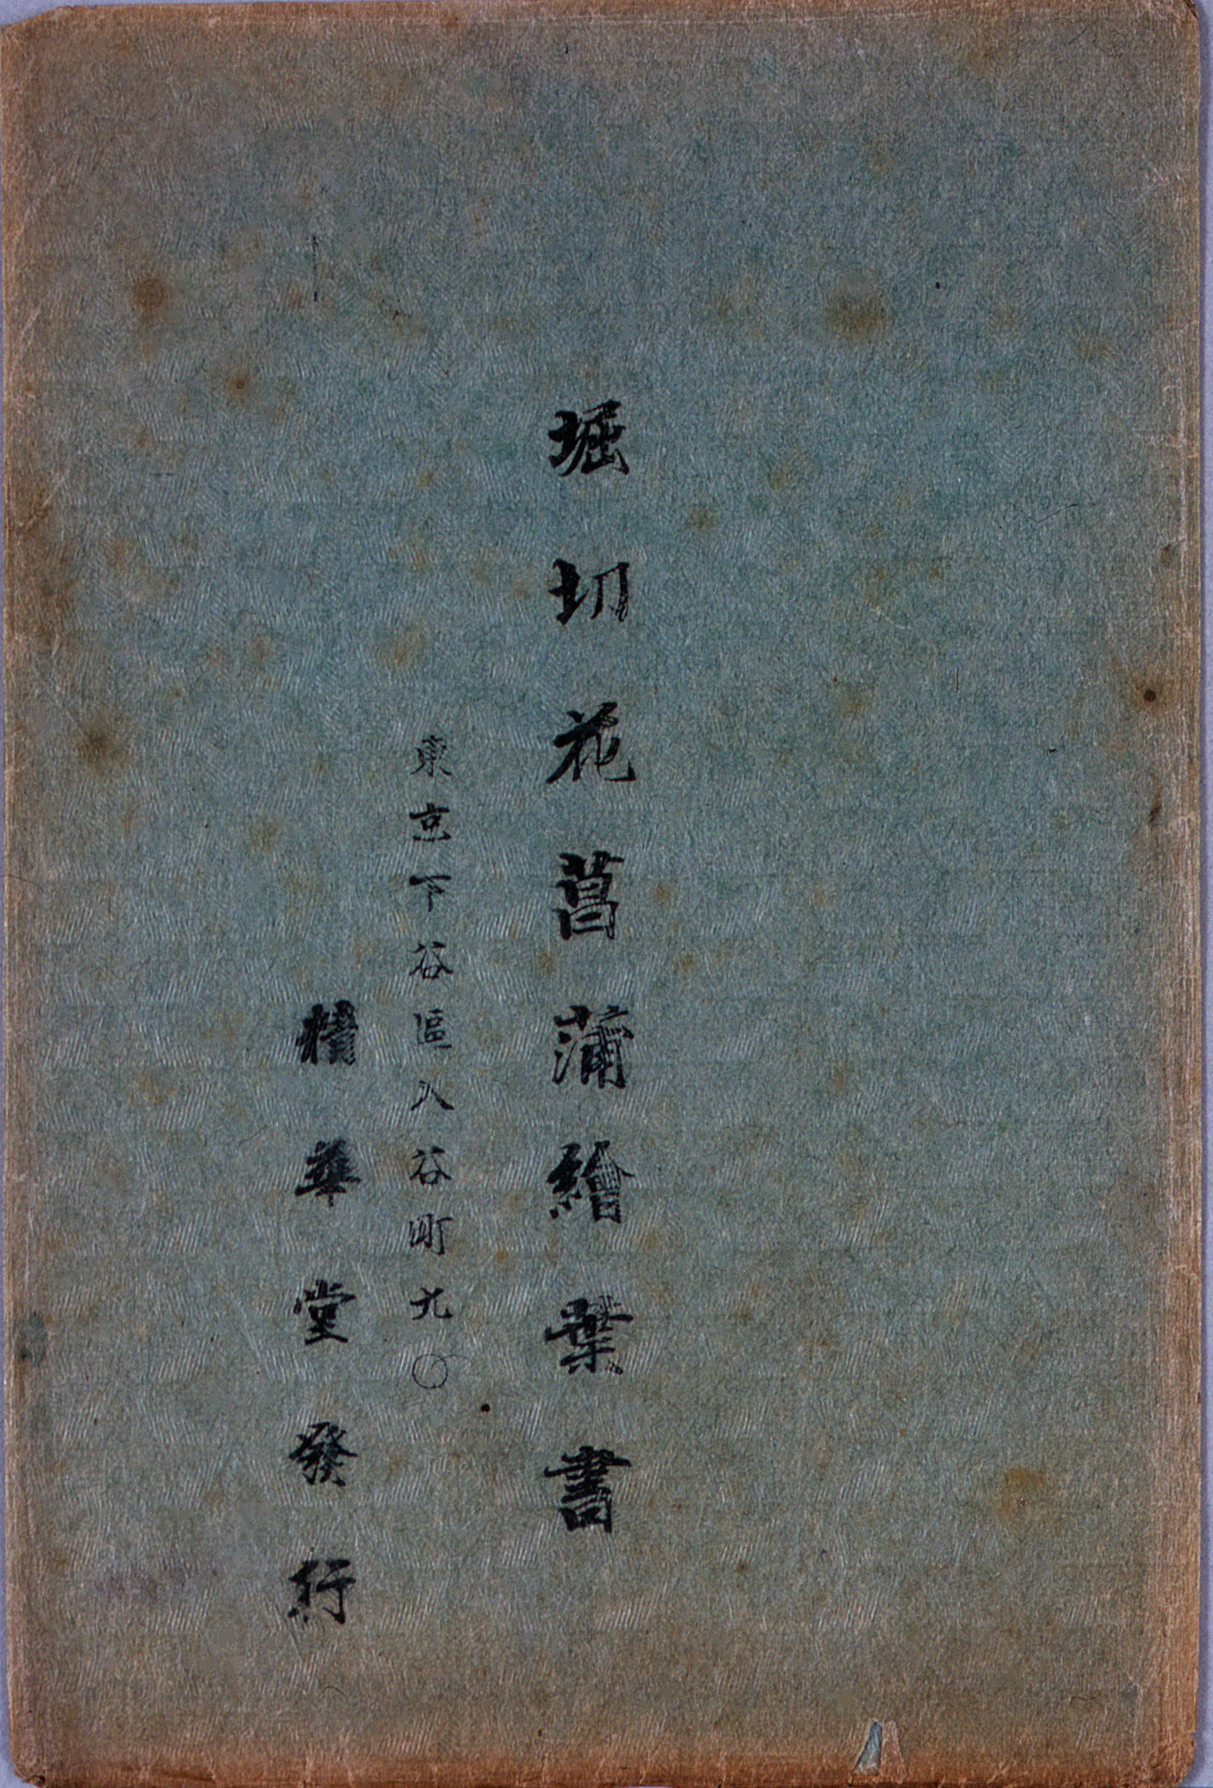 堀切花菖蒲繪葉書
東京下谷區入谷町九〇
精華堂發行